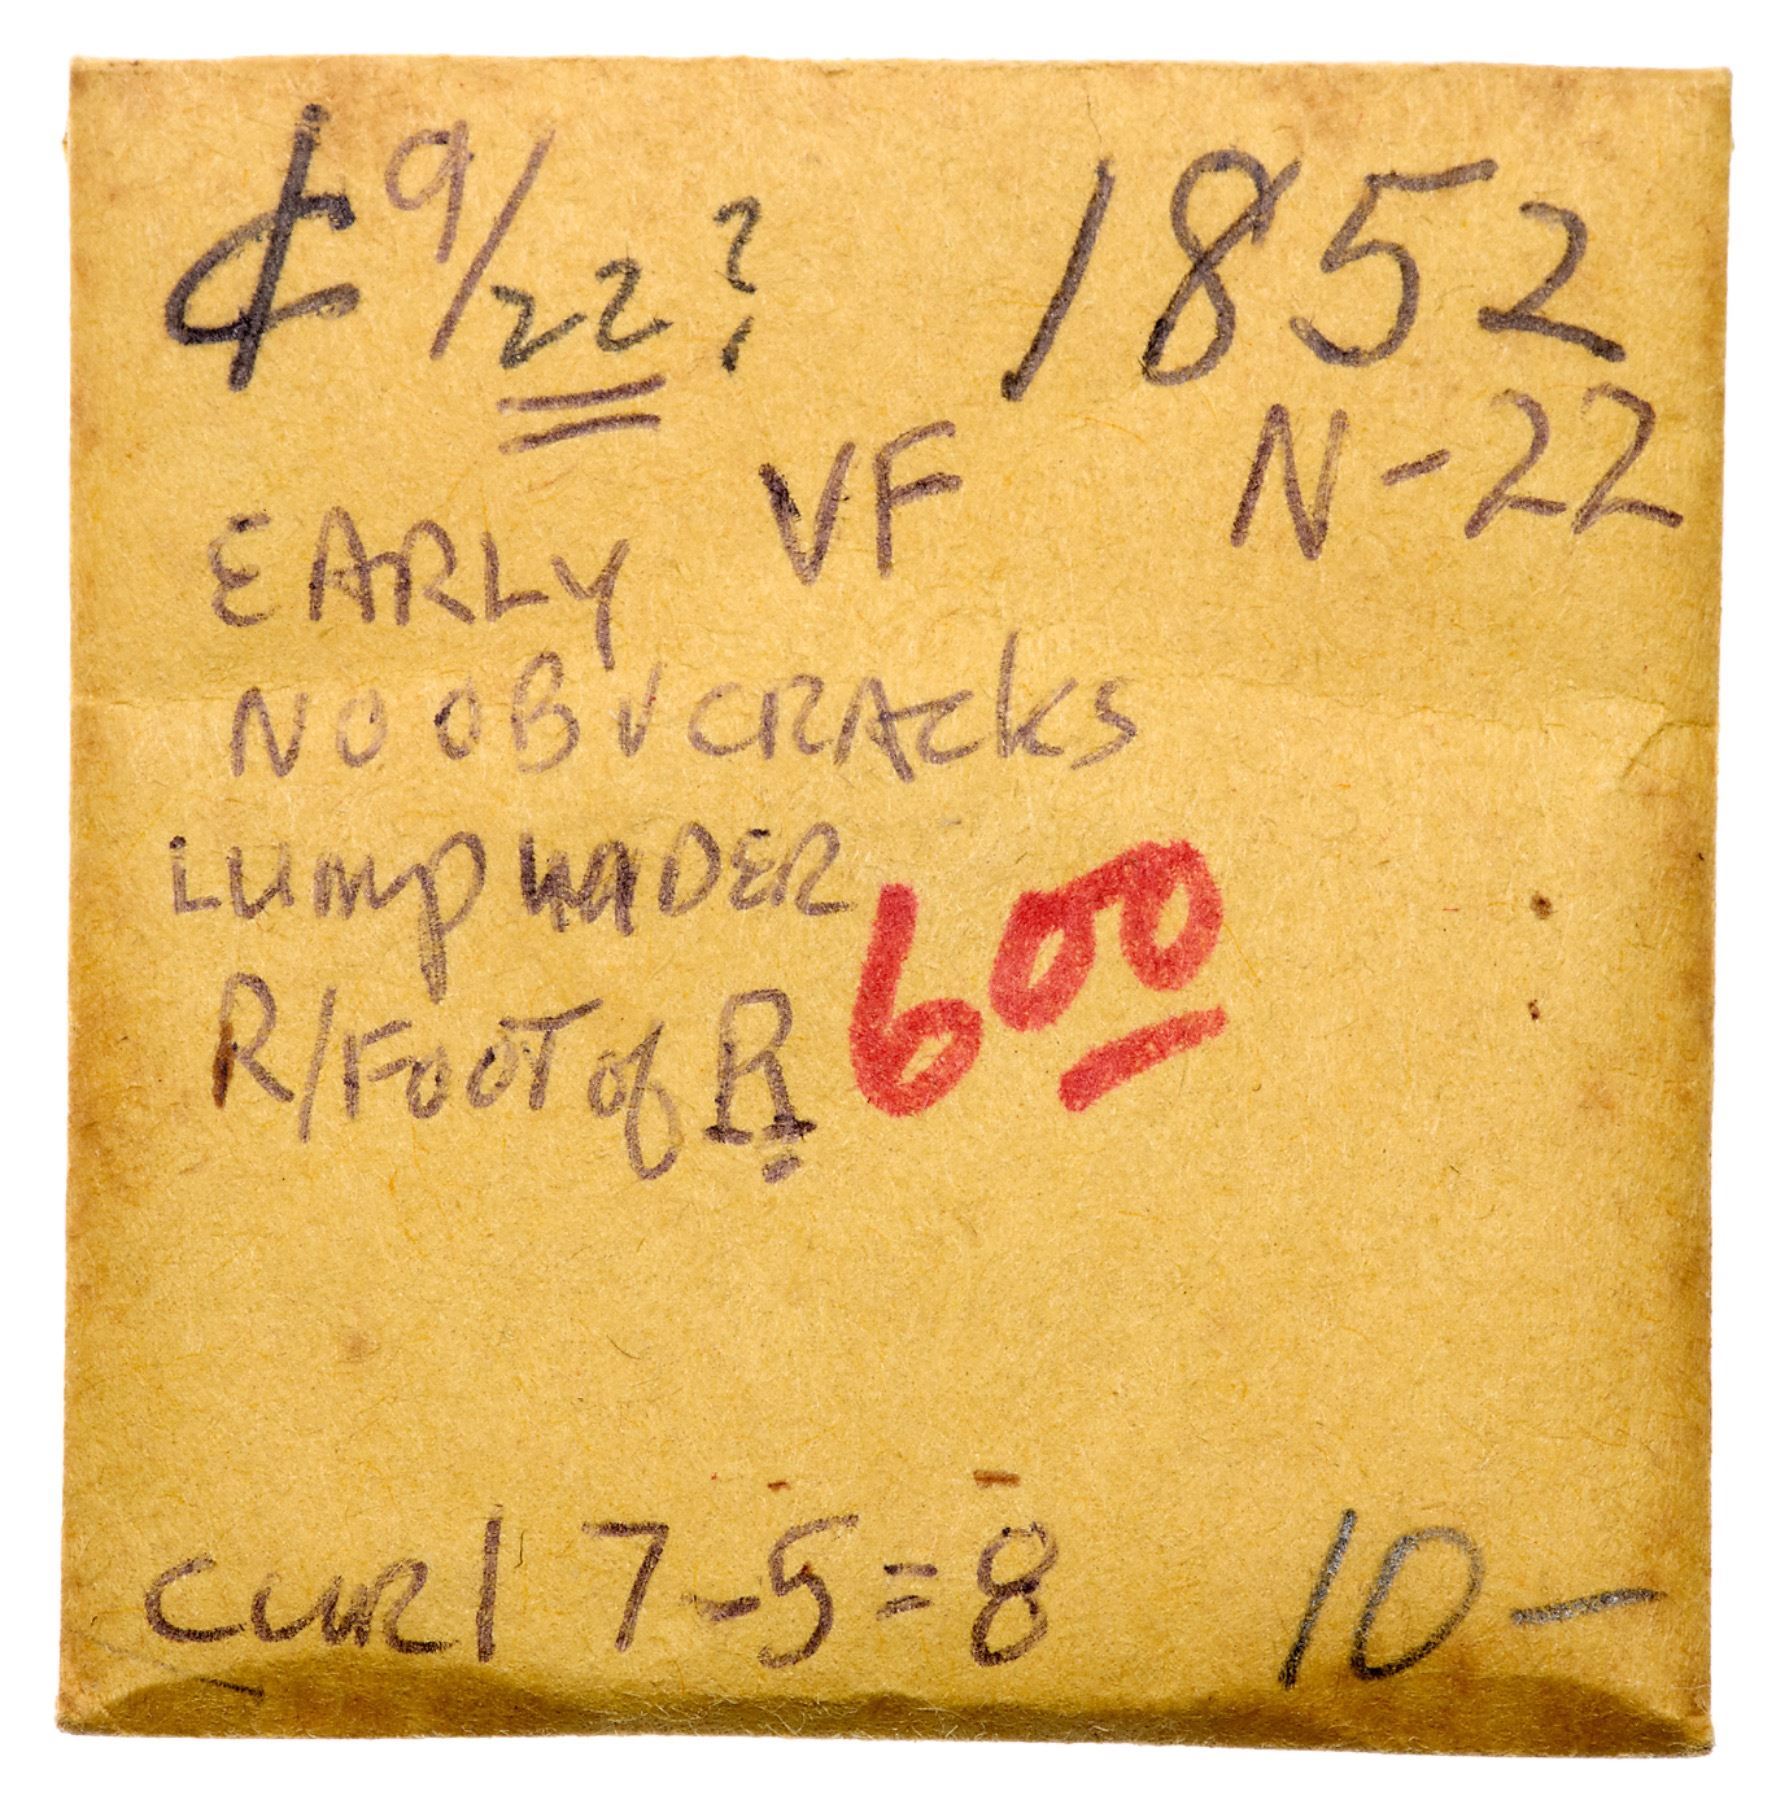 ¢ 9/22? 1852
N-22
VF
EARLY
NO OBV CRACKS
LUMP UNDER
R/FOOT of R
600
CURL 7-5=8 10-